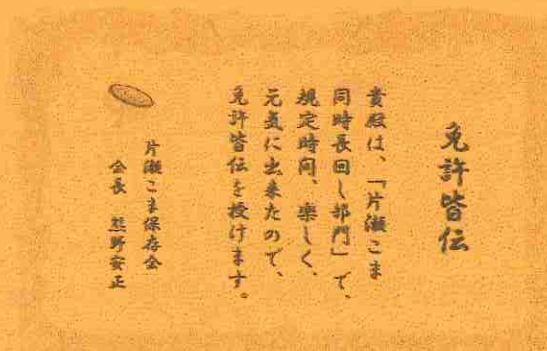 免許皆伝
貴殿は、「片瀬こま
同時長回し部門」で、
規定時間、楽しく、
元気に出来たので、
免許皆伝を授けます。
片瀬こま保存会
会長 熊野安正